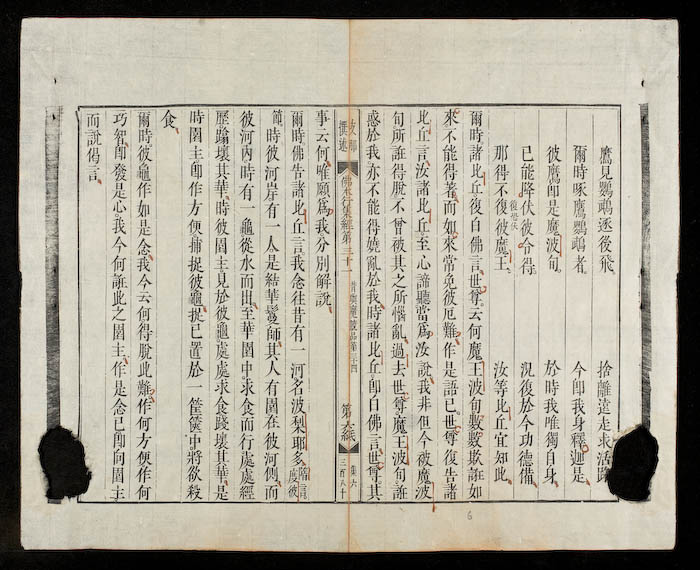 鷹見鸚鵡逐後飛　捨離遠走求活路
爾時啄鷹鸚鵡者　今即我身釋迦是
彼鷹即是魔波旬　於時我唯獨自身
已能降伏彼令得　況復於今功德備
那得不復彼魔王　汝等比丘宜知此
爾時諸比丘復白佛言世尊云何魔王波旬數數欺誑如
來不能得著而如來常免彼厄難作是語已世尊復告諸
比丘言汝諸比丘至心諦聽當爲汝說我非但今被魔波
旬所誑得脫不曾被其之所惱亂過去世尊魔王波旬誑
惑於我亦不能得嬈亂於我時諸比丘即白佛言世尊其
支那撰述　佛本行集經第三十一　昔與魔競品第三十四　第六紙　集六　三百八十
事云何唯願爲我分別解說
爾時佛告諸比丘言我念往昔有一河名波梨耶多隋言度彼
節時彼河岸有一人是結華鬘師其人有園在彼河側而
彼河內時有一龜從水而出至華園中求食而行處處經
歷蹋壞其華時彼園主見於彼龜處處求食踐壞其華是
時園主即作方便捕捉彼龜捉已置於一筐篋中將欲殺
食
爾時彼龜作如是念我今云何得脫此難作何方便作何
巧智即發是心我今何誑此之園主作是念已即向園主
而說偈言
6